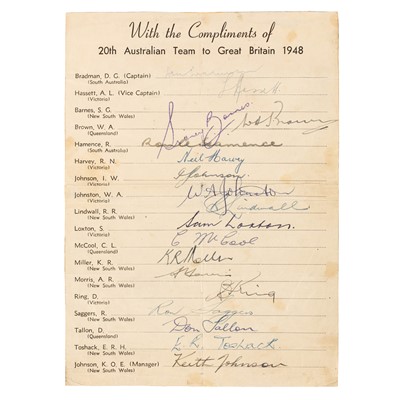 With the Compliments of
20th Australian Team to Great Britain 1948
Bradman, D. G. (Captain)
(South Australia)
Hassett, A. L. (Vice Captain) L Hassett
(Victoria)
Barnes, S. G. Sidney Barnes
(New South Wales)
Brown, W. A. W A Brown
(Queensland)
Hamence, R. Ron Hamence
(South Australia)
Harvey, R. N. Neil Harvey
(Victoria)
Johnson, I. W. I Johnson
(Victoria)
Johnston, W. A. W A Johnston
(Victoria)
Lindwall, R. R. Lindwall
(New South Wales)
Loxton, S. Sam Loxton
(Victoria)
McCool, C. L. C McCool
(Queensland)
Miller, K. R. K R Miller
(New South Wales)
Morris, A. R.
(New South Wales)
Ring, D. D Ring
(Victoria)
Saggers, R. Ron Saggers
(New South Wales)
Tallon, D. Don Tallon
(Queensland)
Toshack, E. R. H. E. R. Toshack
(New South Wales)
Johnson, K. O. E. (Manager) Keith Johnson
(New South Wales)